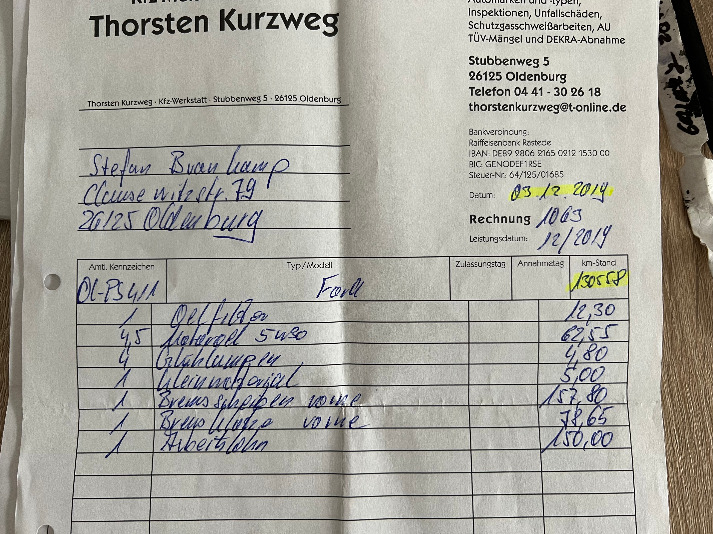 Thorsten Kurzweg
Automarken und -typen,
Inspektionen, Unfallschäden,
Schutzgasschweißarbeiten, AU
TÜV-Mängel und DEKRA-Abnahme
Stubbenweg 5
26125 Oldenburg
Telefon 04 41 - 30 26 18
thorstenkurzweg@t-online.de
Thorsten Kurzweg · Kfz-Werkstatt · Stubbenweg 5 · 26125 Oldenburg
Bankverbindung:
Raiffeisenbank Rastede
IBAN: DE89 2806 2165 0212 1530 00
BIC: GENODEF1RSE
Steuer-Nr: 64/125/01685
Stefan
Clausewitzstr. 79
26125 Oldenburg
Datum: 03.12.2019
Rechnung 1063
Leistungsdatum: 12/2019
Amtl. Kennzeichen Typ/Modell Zulassungstag Annahmetag km-Stand
OL-PS411 Ford 130558
1 Oelfilter 12,30
4,5 Motoröl 5W30 62,55
4 Glühlampen 4,80
1 Kleinmaterial 5,00
1 Bremsscheiben vorne 157,80
1 Bremsklötze vorne 78,65
1 Arbeitslohn 150,00